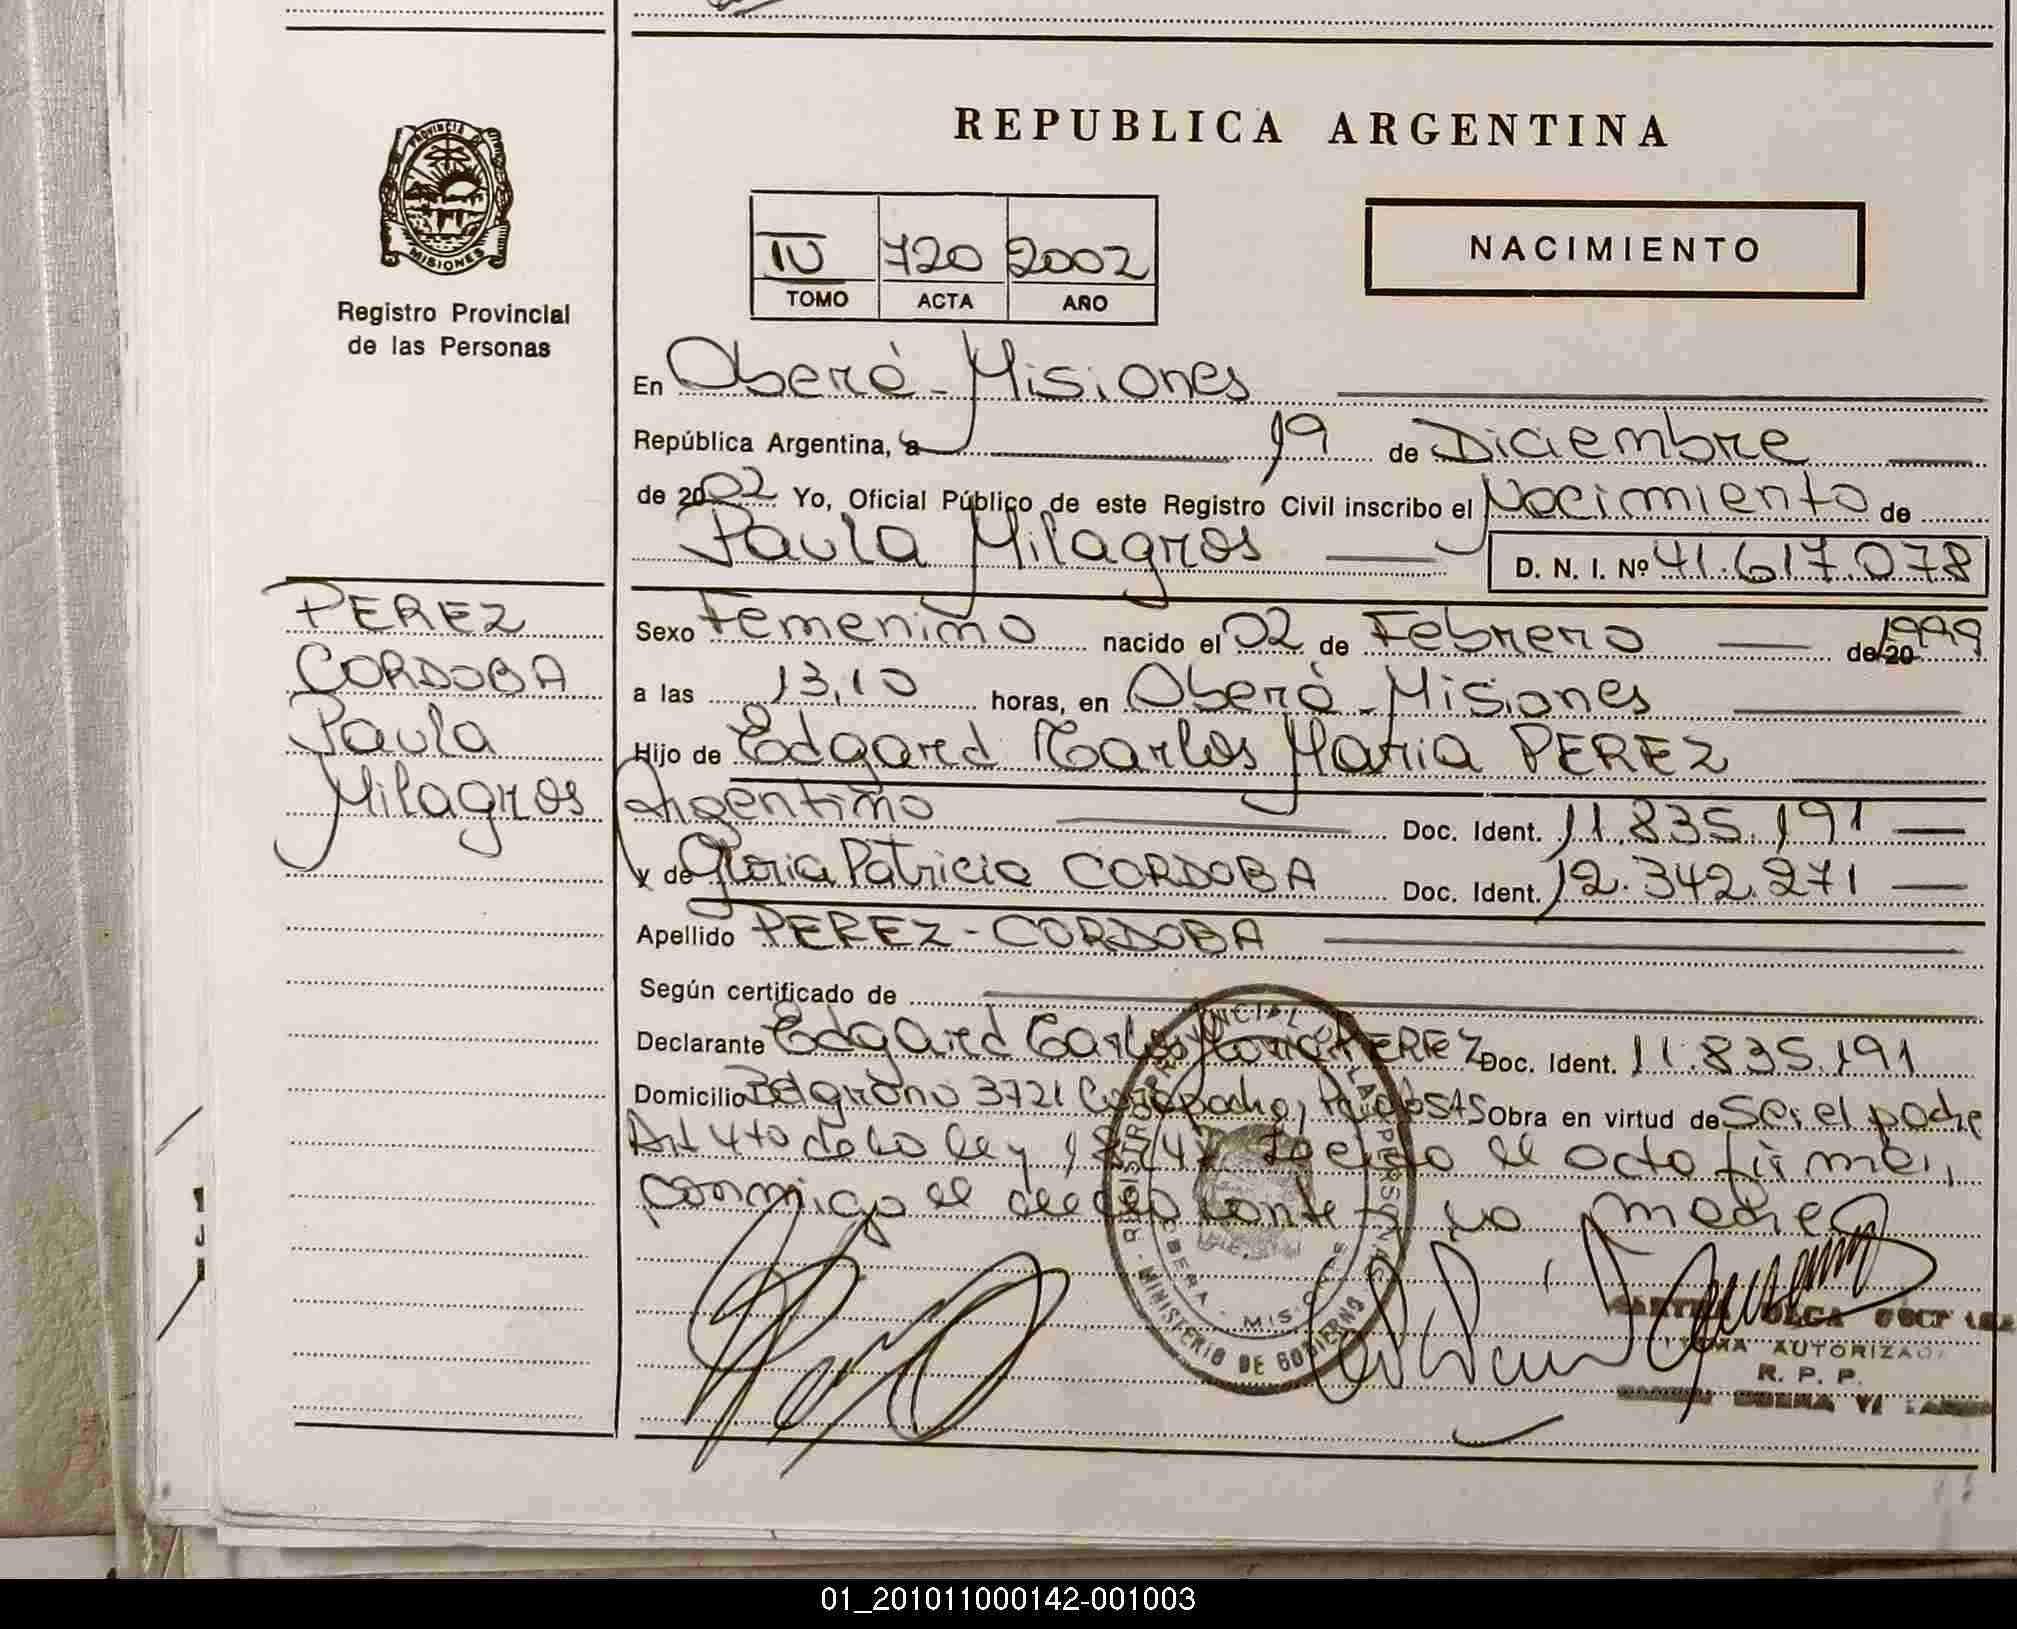 PROVINCIA DE
MISIONES
Registro Provincial
de las Personas
REPUBLICA ARGENTINA
IV 720 2002
TOMO ACTA AÑO
NACIMIENTO
En Oberá - Misiones
República Argentina, a 19 de Diciembre
de 2002 Yo, Oficial Público de este Registro Civil inscribo el Nacimiento de
Paula Milagros
D. N. I. Nº 41.617.078
PEREZ
CORDOBA
Paula
Milagros
Sexo Femenino nacido el 02 de Febrero de 20 1999
a las 13,10 horas, en Oberá - Misiones
Hijo de Edgard Carlos Maria PEREZ
Argentino Doc. Ident. 11.835.191
y de Gloria Patricia CORDOBA Doc. Ident. 12.342.271
Apellido PEREZ - CORDOBA
Según certificado de
Declarante Edgard Carlos Maria PEREZ Doc. Ident. 11.835.191
Domicilio Belgrano 3721 Posadas Obra en virtud de Ser el padre
Art 4to de la ley Leido el acta firman,
conmigo el declarante y la madre
REGISTRO PROVINCIAL DE LAS PERSONAS
OBERA - MISIONES
MINISTERIO DE GOBIERNO
OLGA
FIRMA AUTORIZADA
R. P. P.
OBERA
01_201011000142-001003